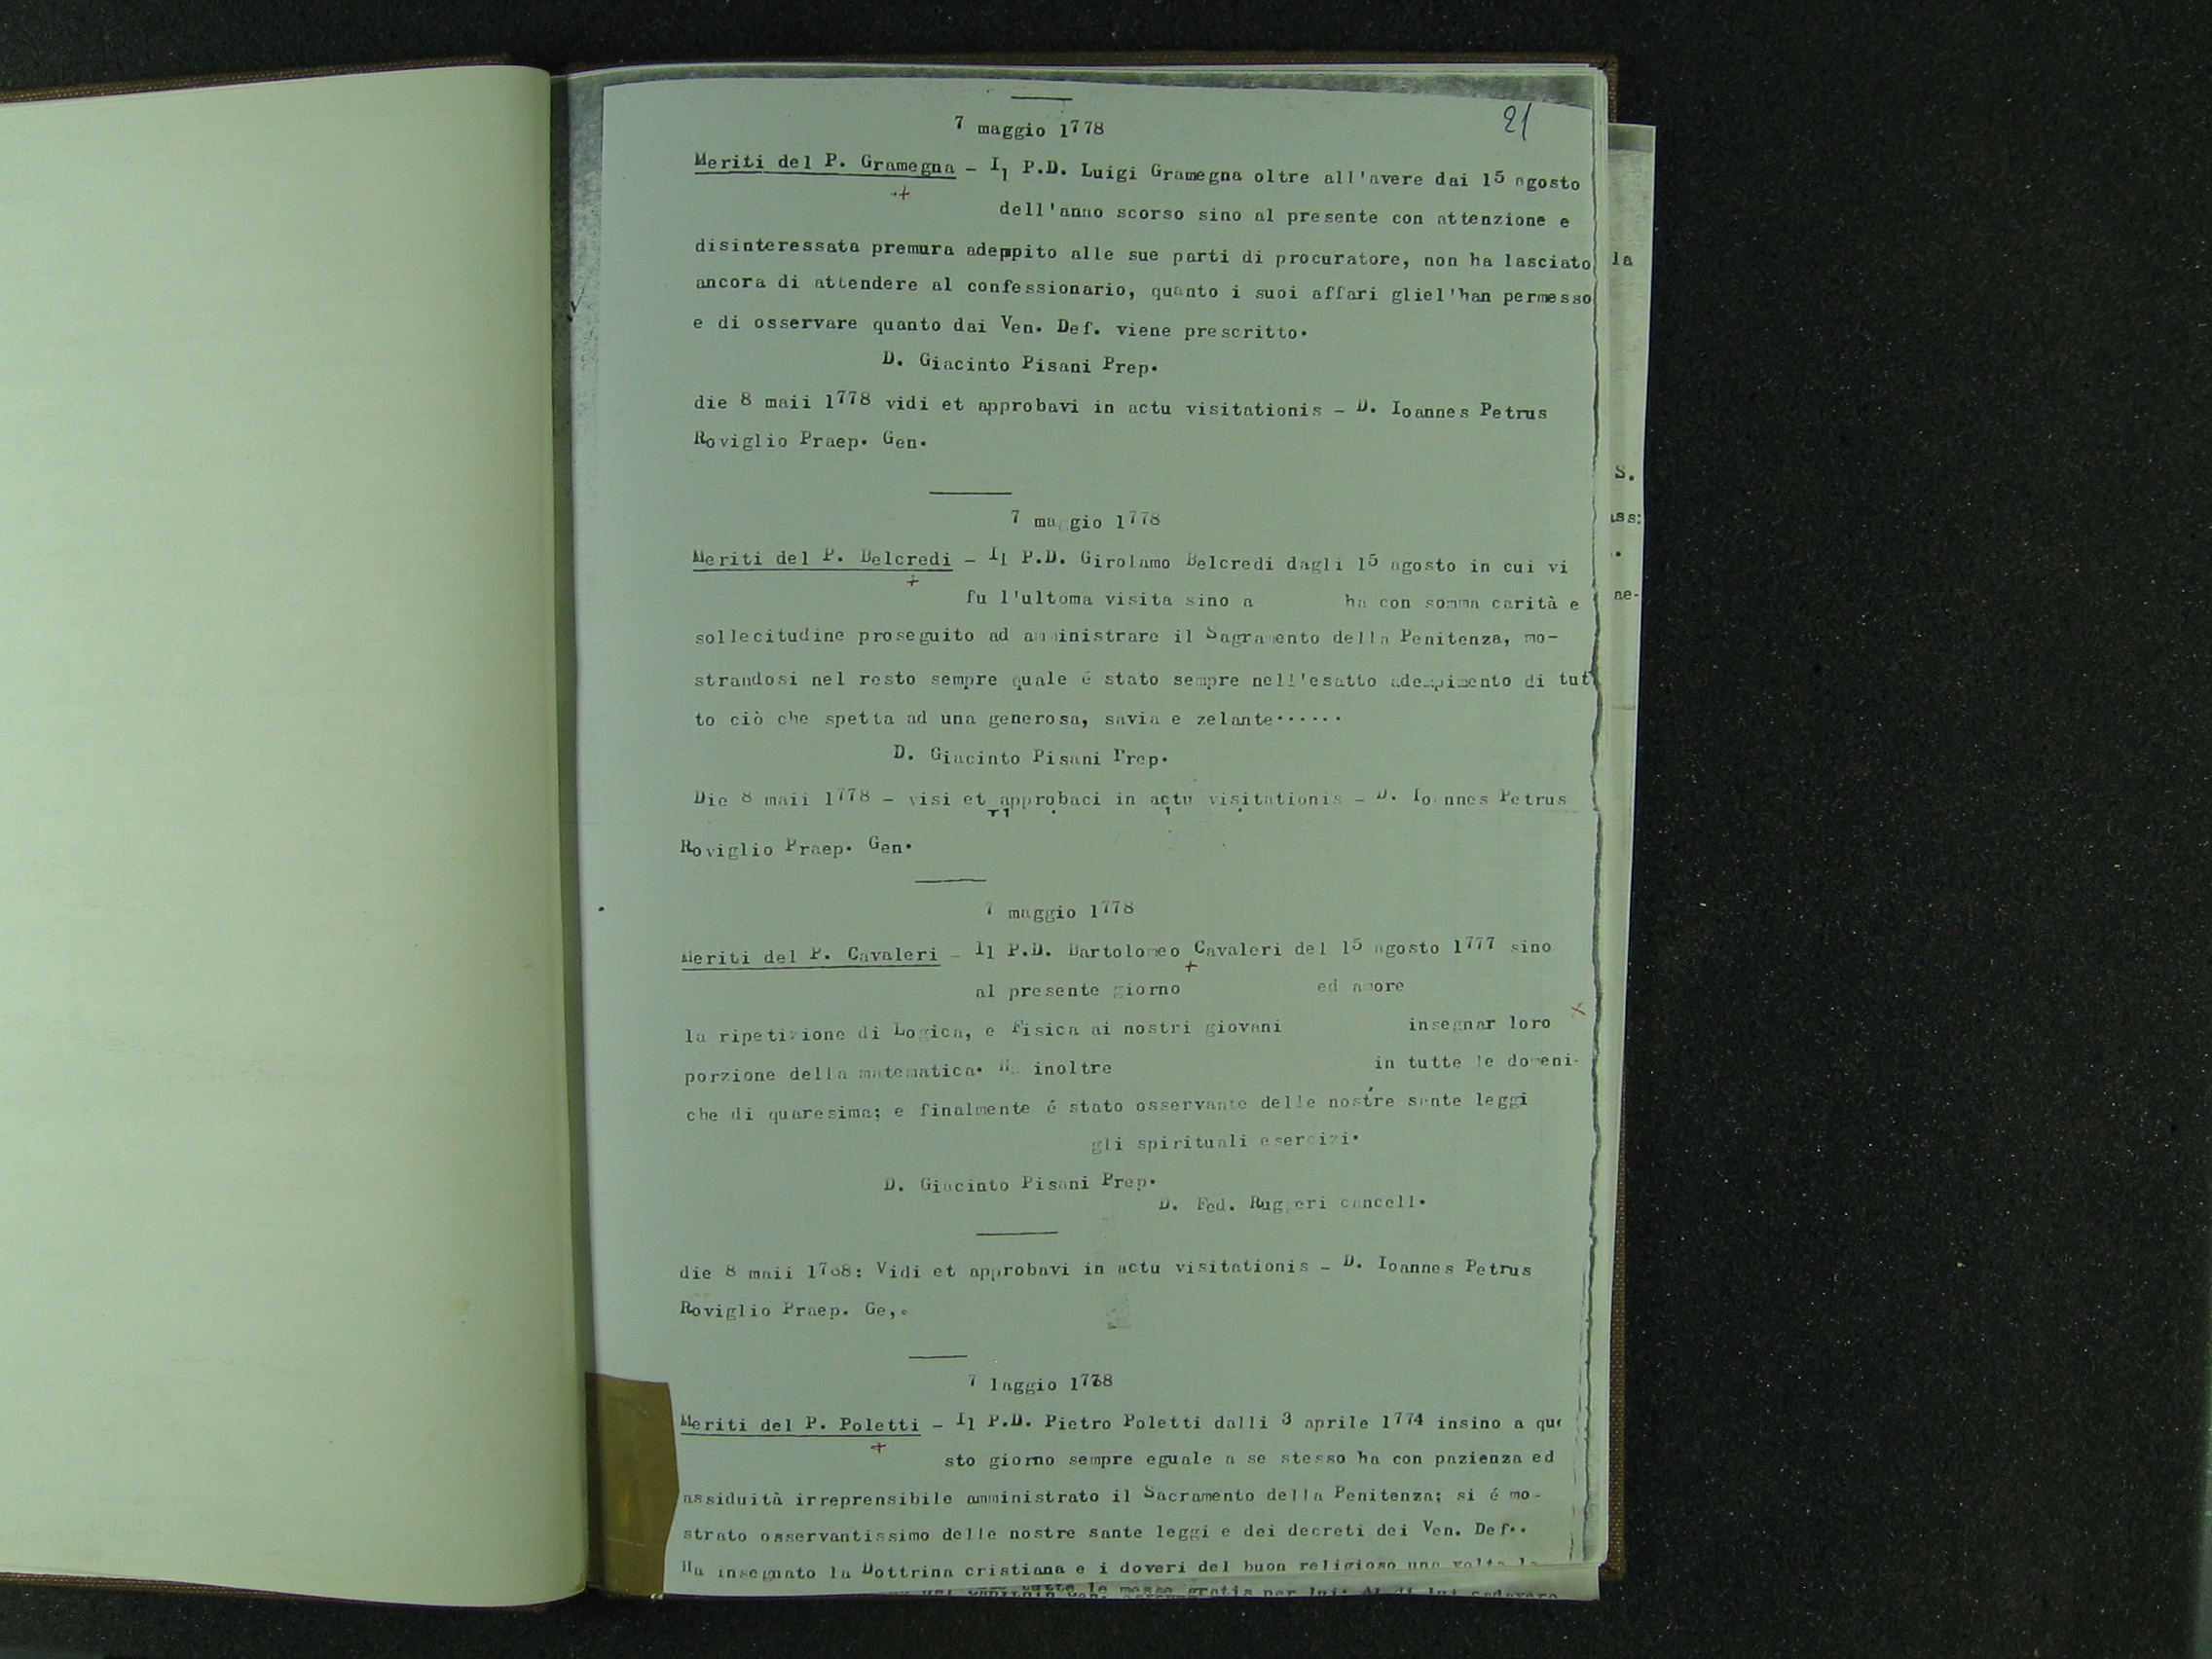 21
7 maggio 1778
Meriti del P. Gramegna - Il P.D. Luigi Gramegna oltre all'avere dai 15 agosto
dell'anno scorso sino al presente con attenzione e
disinteressata premura adempito alle sue parti di procuratore, non ha lasciato
ancora di attendere al confessionario, quanto i suoi affari gliel'han permesso
e di osservare quanto dai Ven. Def. viene prescritto.
D. Giacinto Pisani Prep.
die 8 maii 1778 vidi et approbavi in actu visitationis - D. Ioannes Petrus
Roviglio Praep. Gen.
7 maggio 1778
Meriti del P. Belcredi - Il P.D. Girolamo Belcredi dagli 15 agosto in cui vi
fu l'ultoma visita sino a ha con somma carità e
sollecitudine proseguito ad amministrare il Sagramento della Penitenza, mo-
strandosi nel resto sempre quale é stato sempre nell'esatto adempimento di tut
to ciò che spetta ad una generosa, savia e zelante......
D. Giacinto Pisani Prep.
Die 8 maii 1778 - visi et approbaci in actu visitationis - D. Ioannes Petrus
Roviglio Praep. Gen.
7 maggio 1778
Meriti del P. Cavaleri - Il P.D. Bartolomeo Cavaleri del 15 agosto 1777 sino
al presente giorno ed amore
la ripetizione di Logica, e Fisica ai nostri giovani insegnar loro
porzione della matematica. Ha inoltre in tutte le domeni-
che di quaresima; e finalmente é stato osservante delle nostre sante leggi
gli spirituali esercizi.
D. Giacinto Pisani Prep.
D. Fed. Ruggeri cancell.
die 8 maii 1768: Vidi et approbavi in actu visitationis - D. Ioannes Petrus
Roviglio Praep. Ge,.
7 laggio 1778
Meriti del P. Poletti - Il P.D. Pietro Poletti dalli 3 aprile 1774 insino a que
sto giorno sempre eguale a se stesso ha con pazienza ed
assiduità irreprensibile amministrato il Sacramento della Penitenza; si é mo-
strato osservantissimo delle nostre sante leggi e dei decreti dei Ven. Def..
Ha insegnato la Dottrina cristiana e i doveri del buon religioso una volta la
la
S.
ae-